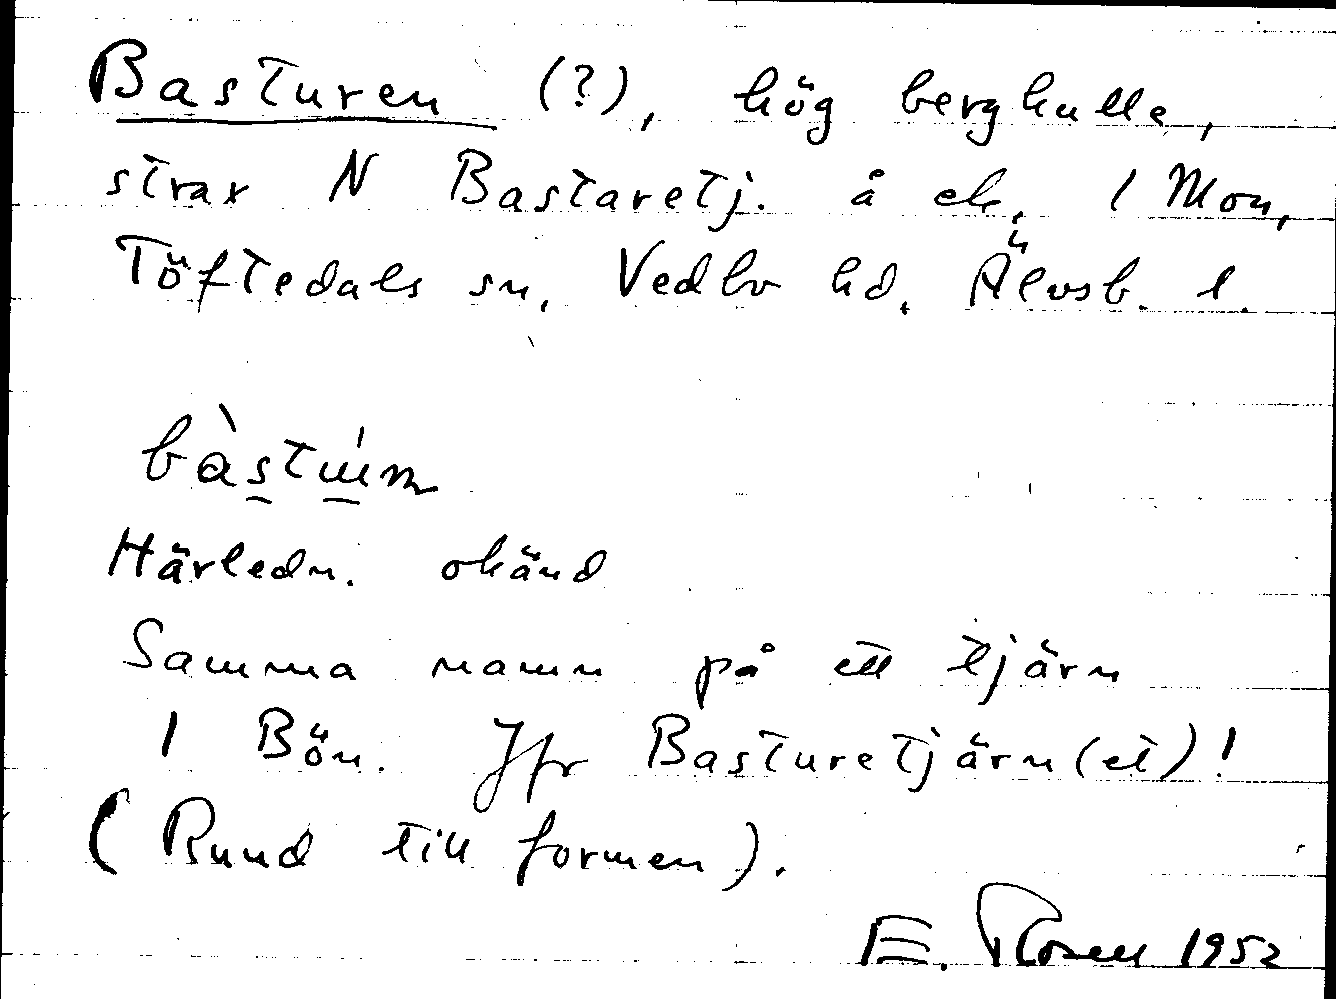 Basturen (?), hög bergkulle,
strax N Bastaretj. å ek. i Mon,
Töftedals sn, Vedbo hd. Älvsb. l.
Härledn. okänd
Samma namn på ett tjärn
i Bön. Jfr Basturetjärn(et)!
(Rund till formen).
E. Rosell 1952